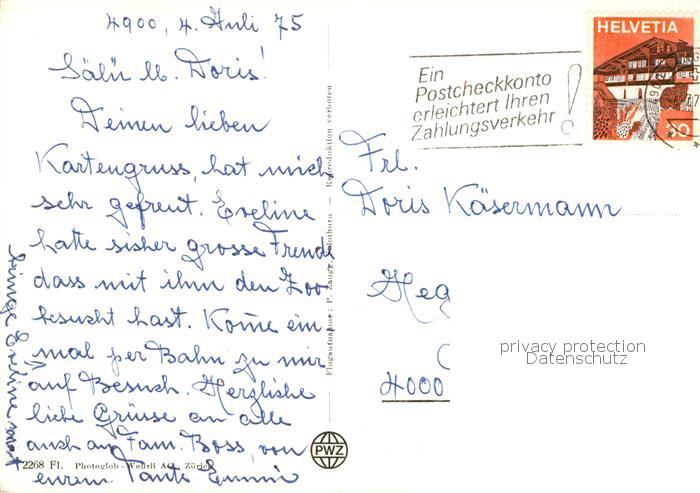 4900, 4. Juli 75
Sälü lb. Doris!
Deinen lieben
Kartengruss, hat mich
sehr gefreut. Eveline
hatte sicher grosse Freude
dass mit ihm den Zoo
besucht hast. Kome ein
mal per Bahn zu mir
auf Besuch. Herzliche
liebe Grüsse an alle
auch an Fam. Boss, von
eurem Tante Emmi
bringe Eveline mit
2268 Fl. Photoglob-Wehrli AG., Zürich
Flugaufnahme: P. Zaugg, Solothurn — Reproduktion verboten
PWZ
Ein
Postcheckkonto
erleichtert Ihren
Zahlungsverkehr!
HELVETIA
30
Frl.
Doris Käsermann
Heg
4000
privacy protection
Datenschutz